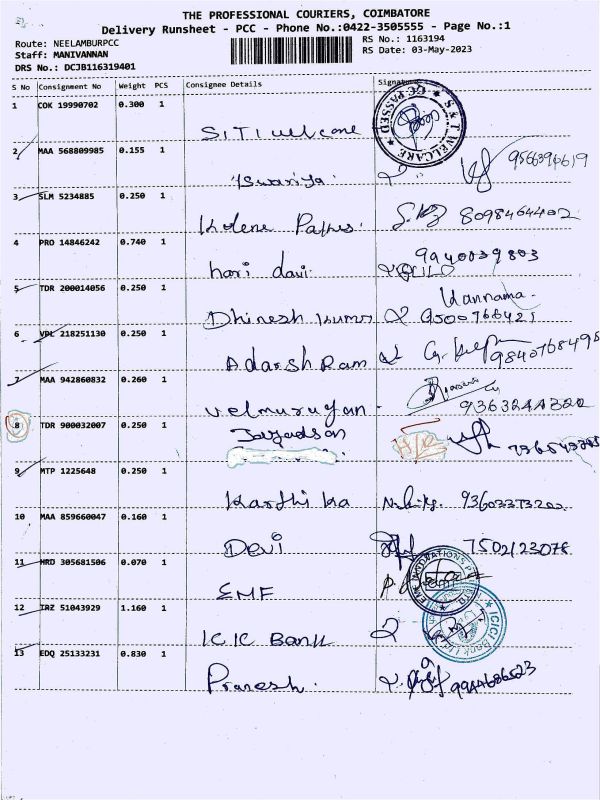 THE PROFESSIONAL COURIERS, COIMBATORE
Delivery Runsheet - PCC - Phone No.:0422-3505555 - Page No.:1
Route: NEELAMBURPCC RS No.: 1163194
Staff: MANIVANNAN RS Date: 03-May-2023
DRS No.: DCJB116319401
S No Consignment No Weight PCS Consignee Details Signature
1 COK 19990702 0.300 1
S.I.T.I welcare
CC PASSED
S & T WELCARE
2 MAA 568809985 0.155 1
Iswariya
3 SLM 5234885 0.250 1
8098464402
4 PRO 14846242 0.740 1
hari davi 9940039803
5 TDR 200014056 0.250 1
Kannama
Dhinesh Kumar 9500766421
6 VPL 218251130 0.250 1
Adarsh Ram 9840768498
7 MAA 942860832 0.260 1
Velmurugan
8 TDR 900032007 0.250 1
9 MTP 1225648 0.250 1
Karthika 9360337320
10 MAA 859660047 0.160 1
Devi 7502123078
11 HRD 305681506 0.070 1
EMF
EMF INNOVATIONS
12 IRZ 51043929 1.160 1
ICIC Bank
ICICI Bank
13 EDQ 25133231 0.830 1
Pranesh. 9944686523